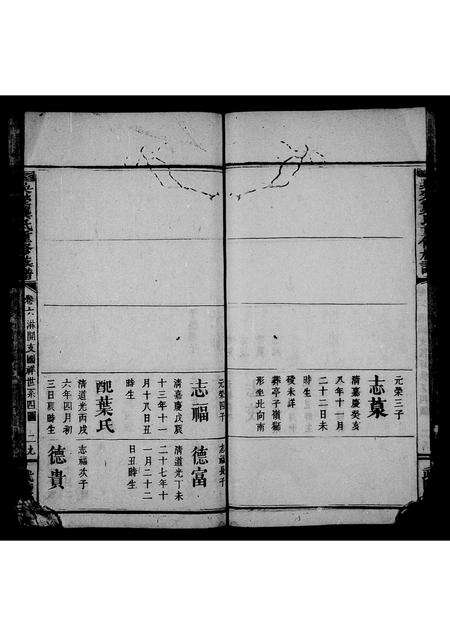 元榮三子
志菓
清嘉慶癸亥
八年十一月
二十二日未
時生
歿未詳
葬亭子嶺貓
形坐北向南
元榮四子
志福
清嘉慶戊辰
十三年十一
月十八日丑
時生
配葉氏
清道光丙戌
六年四月初
三日辰時生
志福長子
德富
清道光丁未
二十七年十
一月二十二
日丑時生
志福次子
德貴
卷六
世系四圖
二九